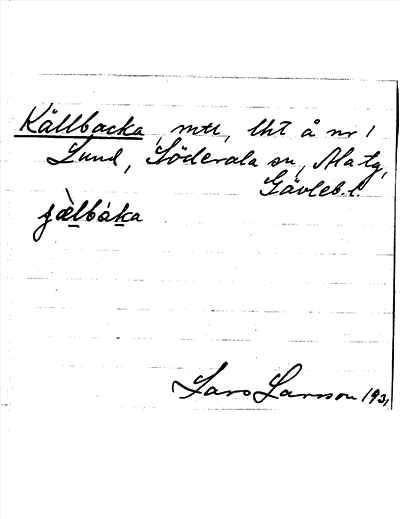 Källbacka, mtl, lht å nr 1
Lund, Söderala sn, Ala tg,
Gävleb. l.
Lars Larsson 1931